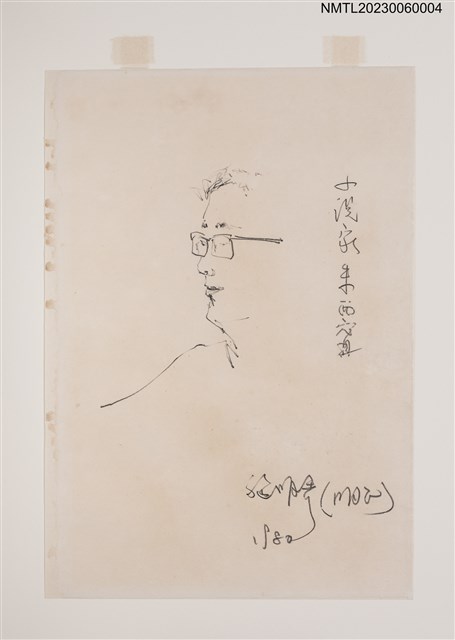 NMTL20230060004
小說家朱西甯
施明正(明正)
1980